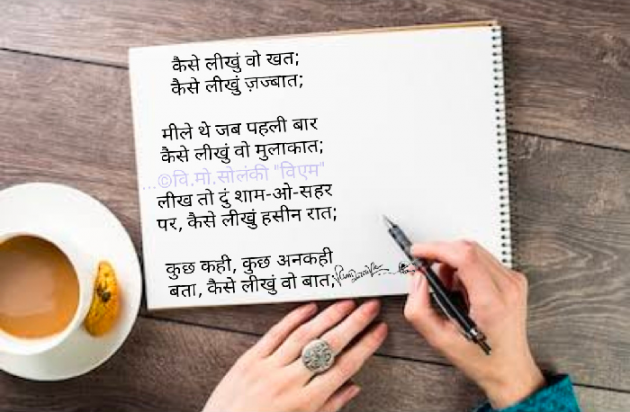 कैसे लीखुं वो खत;
कैसे लीखुं ज़ज्बात;
मीले थे जब पहली बार
कैसे लीखुं वो मुलाकात;
...©वि.मो.सोलंकी "विएम"
लीख तो दुं शाम-ओ-सहर
पर, कैसे लीखुं हसीन रात;
कुछ कही, कुछ अनकही
बता, कैसे लीखुं वो बात;